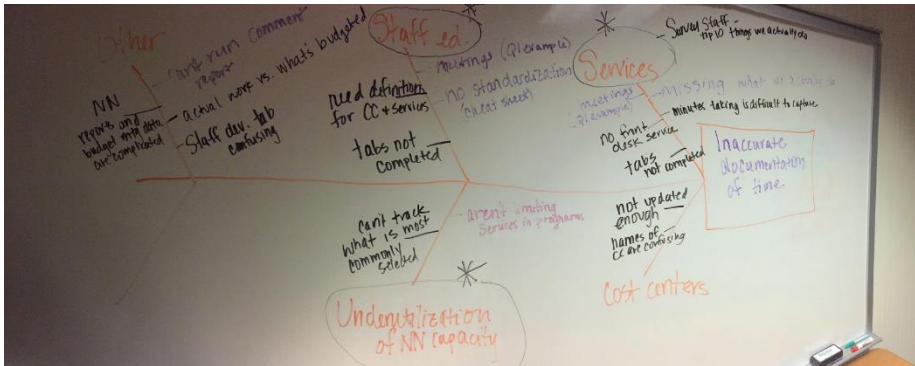 Other
can't run comment
report
actual work vs. what's budgeted
NN
reports and
budget mtg data
are complicated
Staff dev. tab
confusing
Staff ed.
meetings (QI example)
need definition
for CC & services
no standardization
(cheat sheet)
tabs not
completed
Services
Survey Staff -
top 10 things we actually do
meetings
(QI example)
missing what we actually do
minutes taking is difficult to capture
no front
desk service
tabs
not completed
Inaccurate
documentation
of time
can't track
what is most
commonly
selected
aren't limiting
services in programs
Underutilization
of NN capacity
not updated
enough
names of
CC are confusing
Cost centers